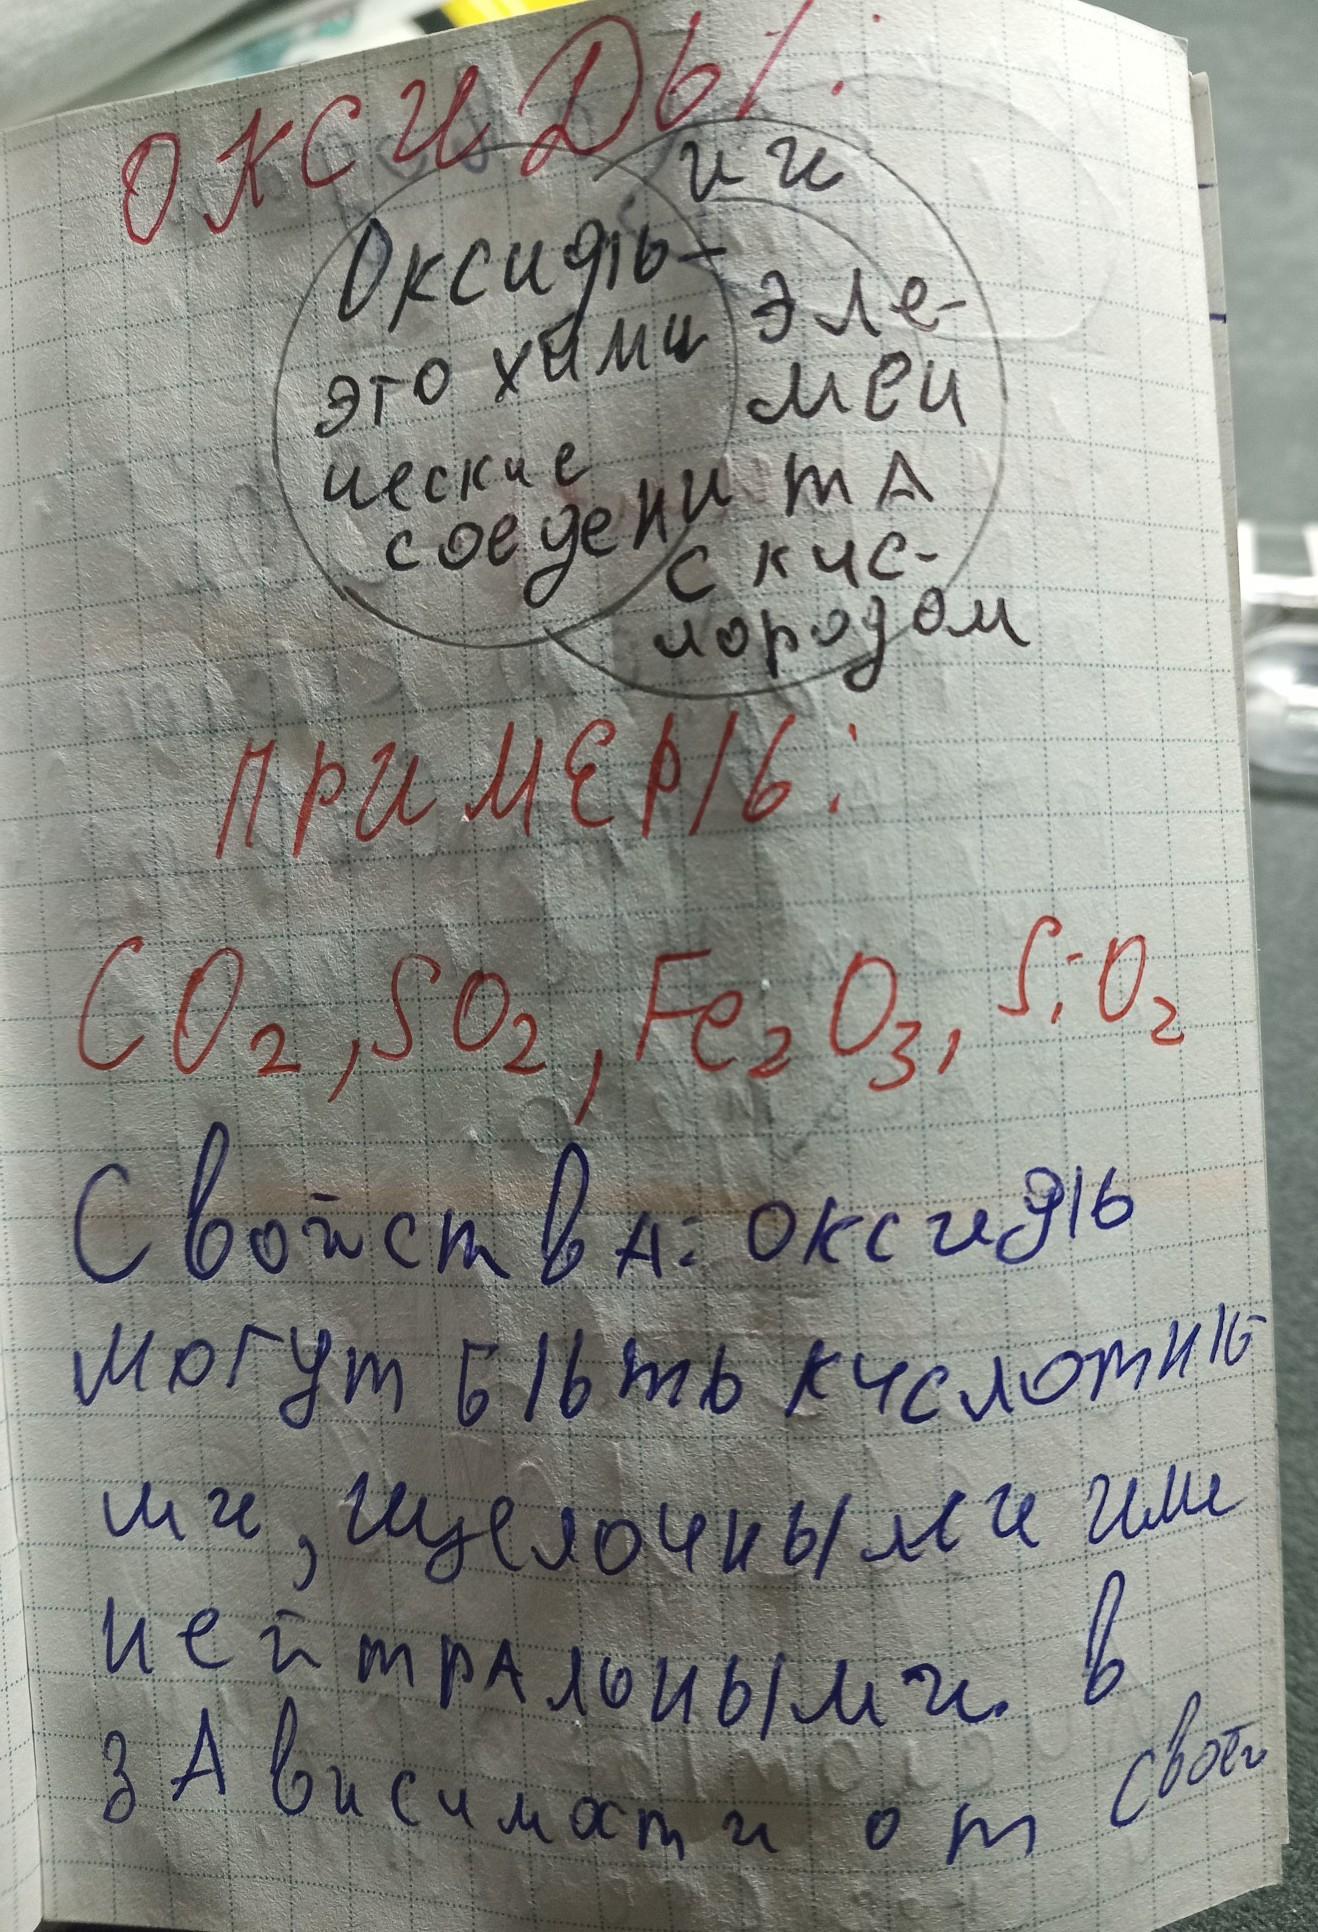 ОКСИДЫ:
Оксиды-
это хими
ческие
соедени
ии
эле-
мен
та
с кис-
лородом
ПРИМЕРЫ:
CO₂, SO₂, Fe₂O₃, SiO₂
Свойства: оксиды
могут быть кислотны
ми, щелочными или
нейтральными. в
зависимости от своей